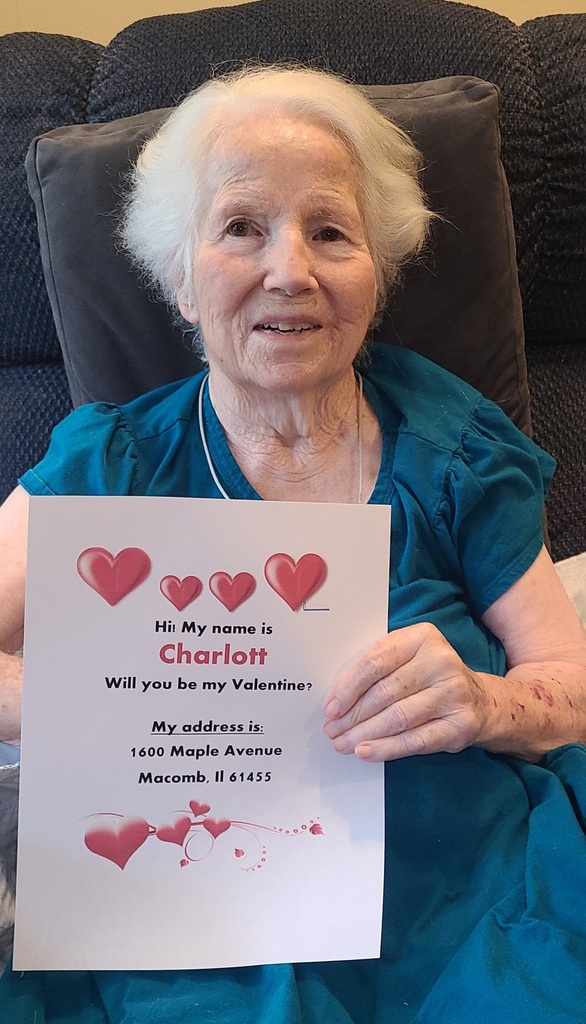 Hi! My name is
Charlott
Will you be my Valentine?
My address is:
1600 Maple Avenue
Macomb, Il 61455